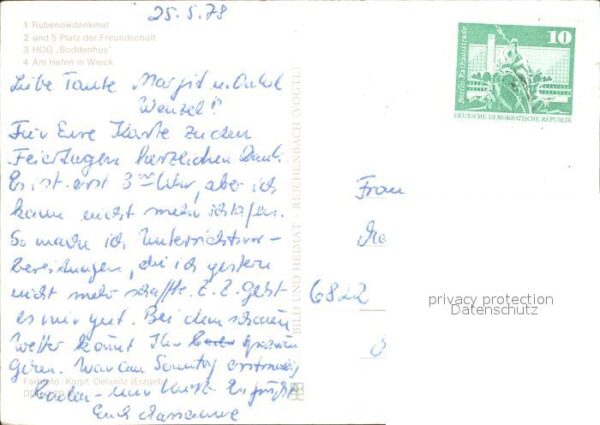 25.5.78
1 Rubenowdenkmal
2 und 5 Platz der Freundschaft
3 HOG „Buddenhus"
4 Am Hafen in Wieck
Liebe Tante Margit u. Onkel
Wenzel!
Für Eure Karte zu den
Feiertagen herzlichen Dank.
Es ist erst 3 Uhr, aber ich
kann nicht mehr schlafen.
So mache ich Unterrichtsvor-
bereitungen, die ich gestern
nicht mehr schaffte. Z. Z. geht
es mir gut. Bei dem schönen
Wetter könnt Ihr
gären. War am Sonntag erstmalig
baden - Es grüßt
Euch
Farbfoto Karpf, Oelsnitz (Erzgeb.)
BILD UND HEIMAT · REICHENBACH (VOGTL)
Berlin, Rathausstraße
10
DEUTSCHE DEMOKRATISCHE REPUBLIK
Frau
6822
privacy protection
Datenschutz